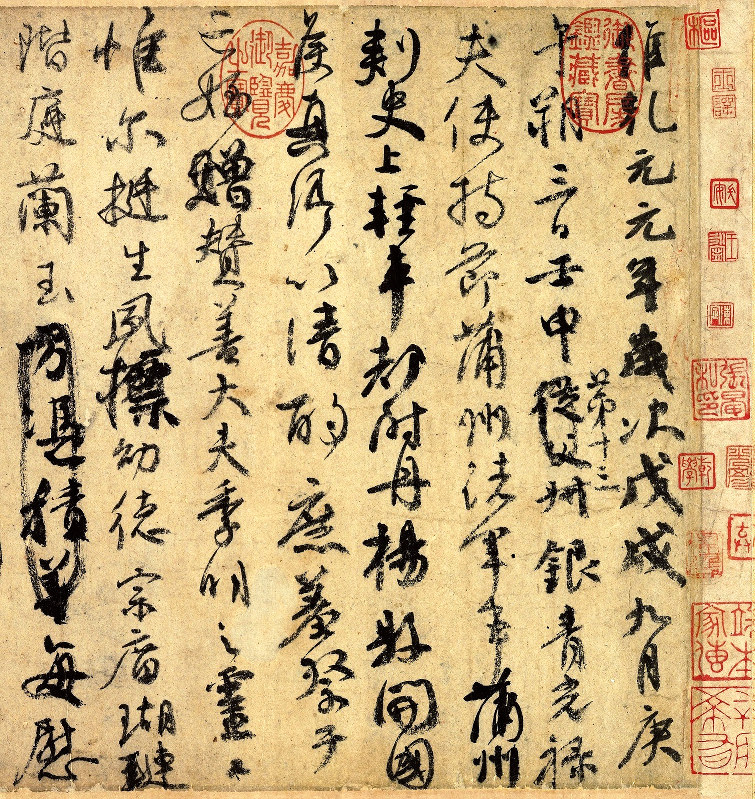 維乾元元年歲次戊戌九月庚
午朔三日壬申第十三從父叔銀青光祿
夫使持節蒲州諸軍事蒲州
刺史上輕車都尉丹楊縣開國
侯真卿以清酌庶羞祭于
亡姪贈贊善大夫季明之靈曰
惟爾挺生夙標幼德宗廟瑚璉
階庭蘭玉方憑積善每慰
御書房鑑藏寶
嘉慶御覽之寶
樞
張晏私印